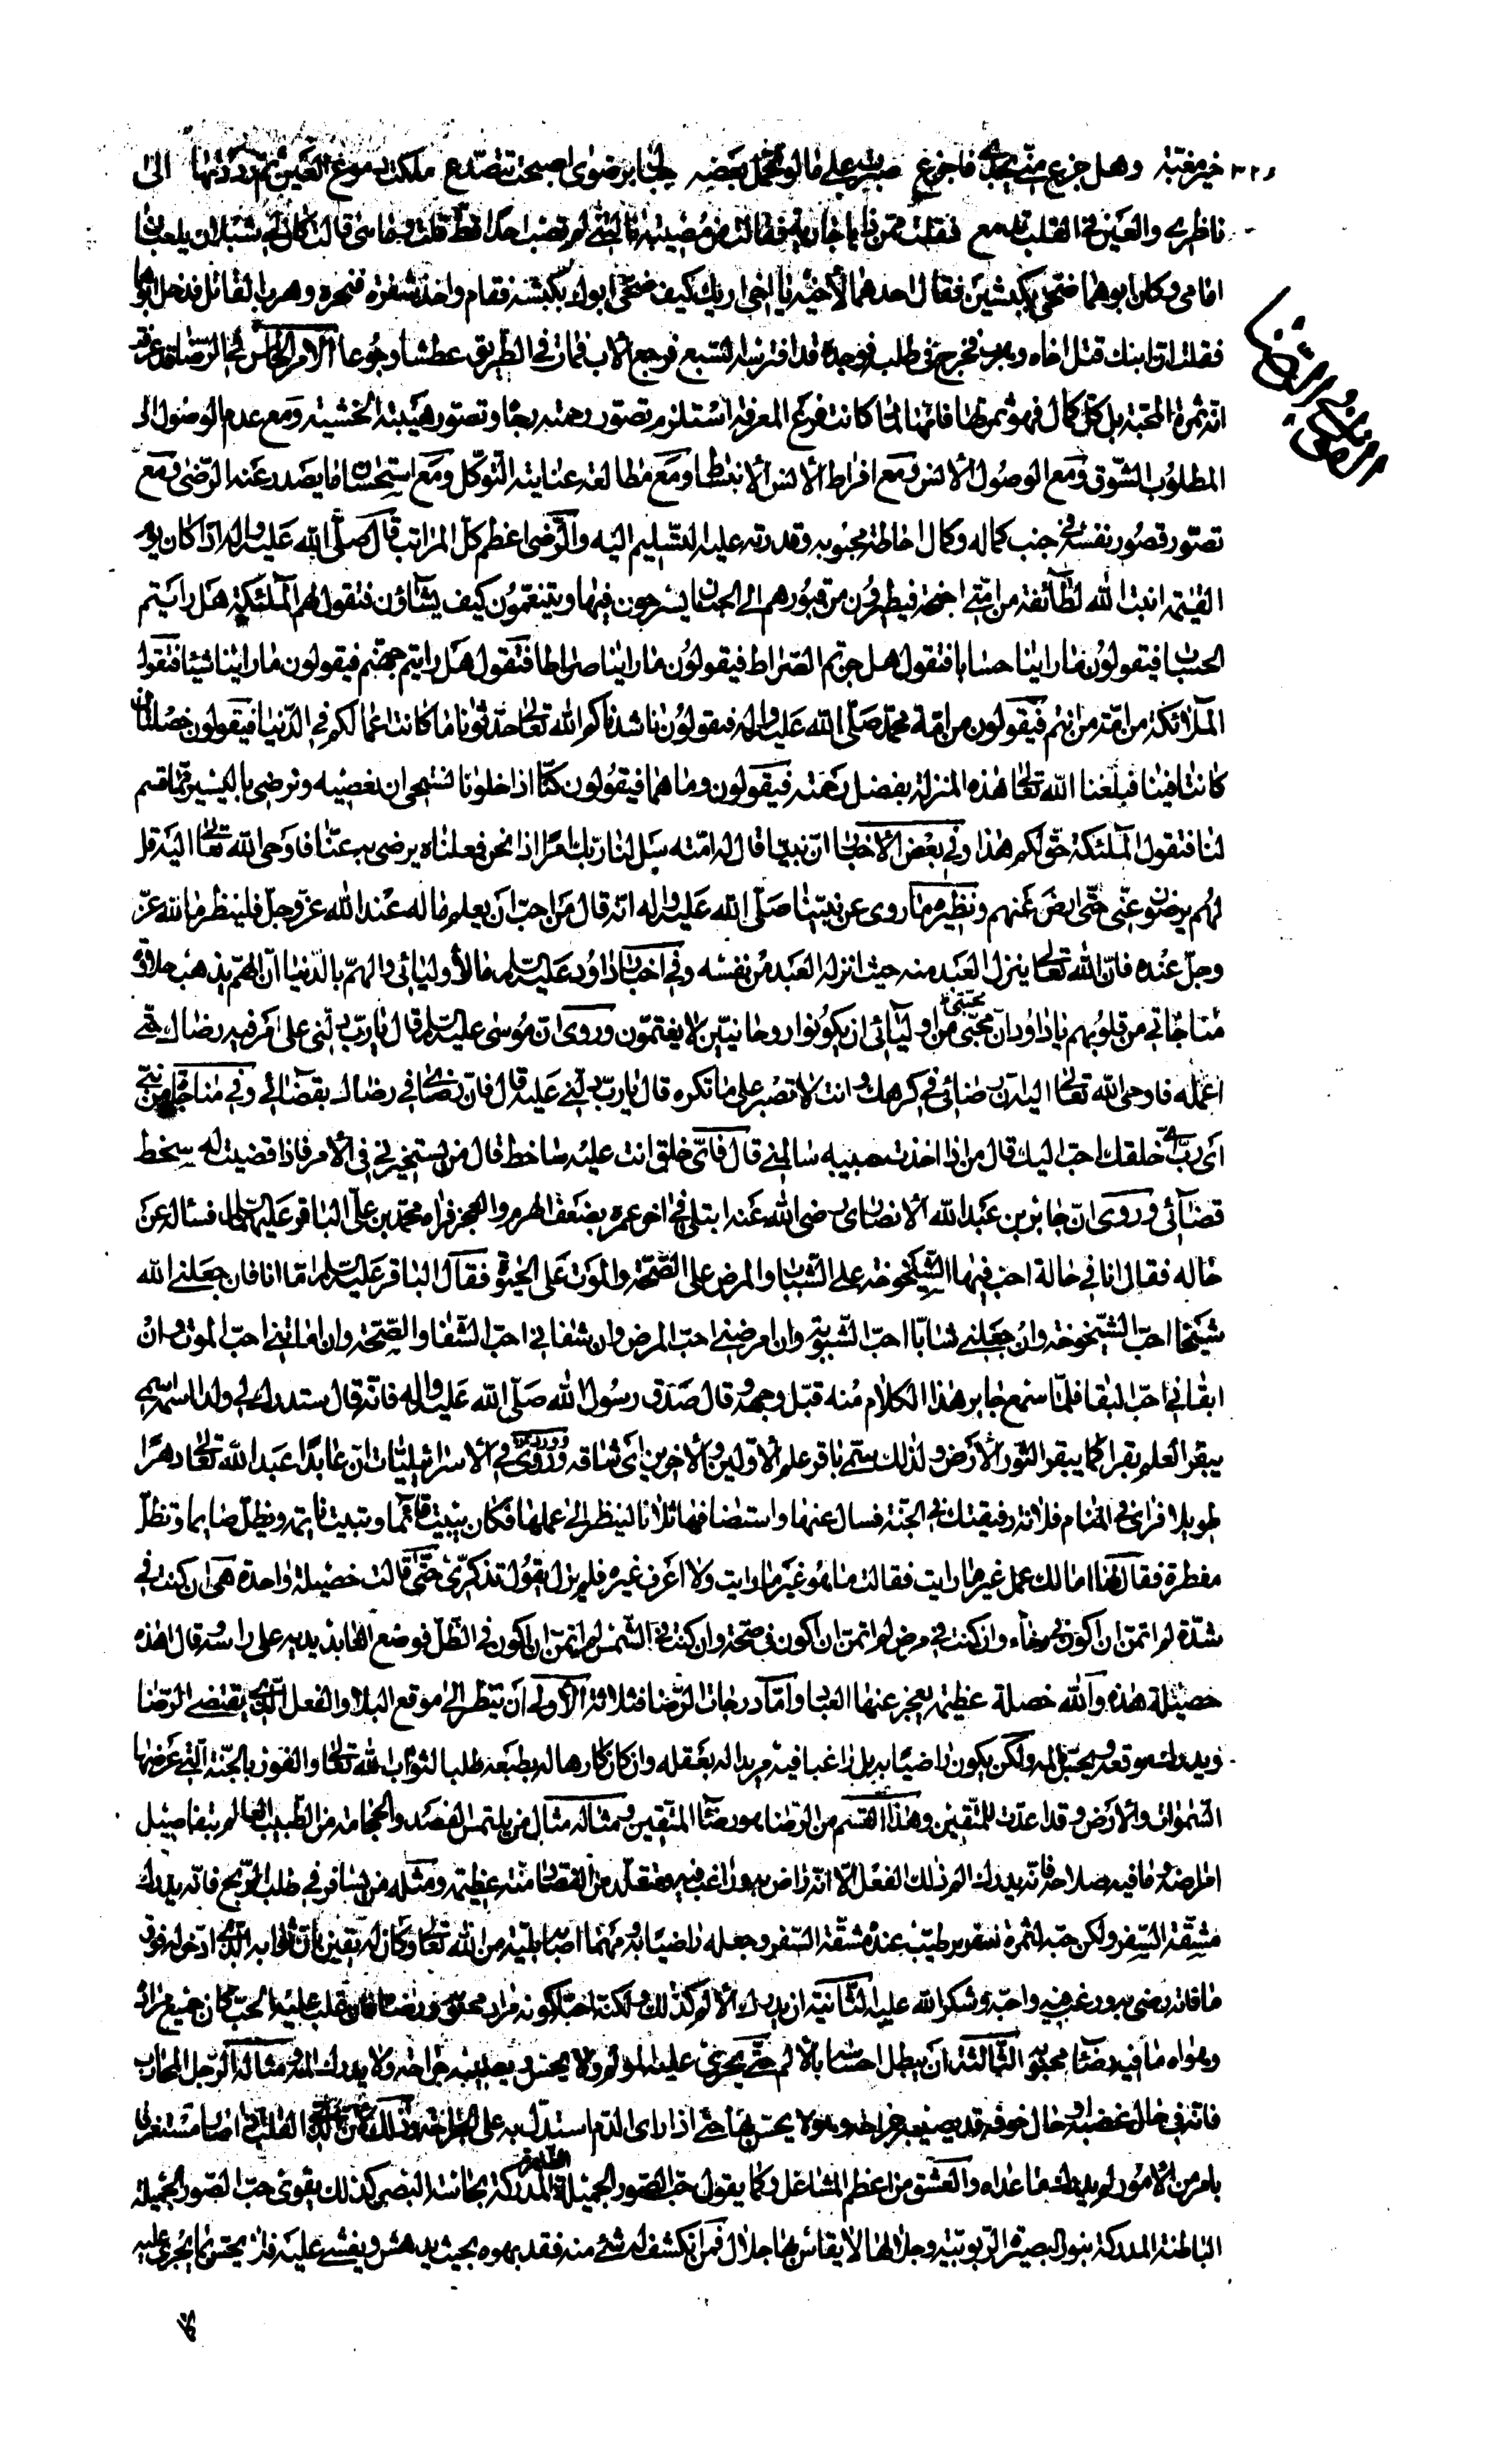 خير مغبّة وهل جزع منّي يجدي فاجزع صبرت على ما لو تحمّل بعضه جبال رضوى اصبحت تتصدّع ملكت دموع العين ثم رددتها الى
ناظري والعين في القلب تدمع فقلت ممّن ذا يا جارية فقالت من مصيبة نالتني لم تصب احدا قط قلت وما هي قالت كان لي شبلان يلعبان
امامي وكان ابوهما ضحّى بكبشين فقال احدهما لأخيه يا اخي اريك كيف ضحّى ابوك بكبشه فقام واخذ شفرة فنحره وهرب القاتل فدخل ابوهما
فقلت ان ابنك قتل اخاه وهرب فخرج في طلبه فوجده قد افترسه السبع فرجع الأب فمات في الطريق عطشا وجوعا الامر الخامس في الرضا قد عرفت
انّه ثمرة المحبّة بل كلّ كمال فهو ثمرتها فانّها لمّا كانت فرع المعرفة استلزم تصوّر رحمته رجا وتصوّر هيبته الخشية ومع عدم الوصول الى
المطلوب الشوق ومع الوصول الأنس ومع افراط الأنس الأنبساط ومع مطالعة عنايته التوكّل ومع استحسان ما يصدر عنه الرّضى ومع
تصوّر قصور نفسه في جنب كماله وكمال احاطة محبوبه وقدرته عليه التسليم اليه والرّضى اعظم كلّ المراتب قال صلّى الله عليه واله اذا كان يوم
القيمة انبت الله لطائفة من امّتي اجنحة فيطيرون من قبورهم الى الجنان يسرحون فيها ويتنعّمون كيف يشاؤن فتقول لهم الملئكة هل رايتم
الحساب فيقولون ما راينا حسابا فتقول هل جزتم الصّراط فيقولون ما راينا صراطا فتقول هل رايتم جهنّم فيقولون ما راينا شيئا فتقول
الملائكة من امّة من انتم فيقولون من امّة محمّد صلّى الله عليه واله فيقولون ناشدناكم الله تعالى حدّثونا ما كانت اعمالكم في الدّنيا فيقولون خصلتان
كانتا فينا فبلّغنا الله تعالى هذه المنزلة بفضل رحمته فيقولون وما هما فيقولون كنّا اذا خلونا نستحي ان نعصيه ونرضى باليسير ممّا قسم
لنا فتقول الملئكة حقّ لكم هذا وفي بعض الأخبار انّ نبيّا قال له امّته سل لنا ربّك امرا اذا نحن فعلناه يرضى به عنّا فاوحى الله تعالى اليه قل
لهم يرضون عنّي حتّى ارضى عنهم ونظيره ما روى عن نبيّنا صلّى الله عليه واله انّه قال من احبّ ان يعلم ما له عند الله عزّ وجلّ فلينظر ما لله عزّ
وجلّ عنده فانّ الله تعالى ينزل العبد منه حيث انزله العبد من نفسه وفي اخبار داود عليه السلام ما لأوليائي والهمّ بالدّنيا انّ الهمّ يذهب حلاوة
مناجاتي من قلوبهم يا داود انّ محبّتي من اوليائي ان يكونوا روحانيّين لا يغتمّون وروى ان موسى عليه السلام قال يا ربّ دلّني على امر فيه رضاك حتّى
اعمله فاوحى الله تعالى اليه ان رضائي في كرهك وانت لا تصبر على ما تكره قال يا ربّ دلّني عليه قال فان رضائي في رضاك بقضائي وفي مناجاة موسى
اي ربّ اي خلقك احبّ اليك قال من اذا اخذت حبيبه سالمني قال فايّ خلق انت عليه ساخط قال من يستخيرني في الأمر فاذا قضيت له سخط
قضائي وروى ان جابر بن عبد الله الأنصاري رضي الله عنه ابتلى في اخر عمره بضعف الهرم والعجز فزاره محمّد بن عليّ الباقر عليهما السلام فساله عن
حاله فقال انا في حالة احبّ فيها الشيخوخة على الشباب والمرض على الصّحة والموت على الحيوة فقال الباقر عليه السلام امّا انا فان جعلني الله
شيخا احبّ الشيخوخة وان جعلني شابّا احبّ الشّبوبة وان امرضني احبّ المرض وان شفاني احبّ الشّفا والصّحة وان اماتني احبّ الموت وان
ابقاني احبّ البقا فلمّا سمع جابر هذا الكلام منه قبّل وجهه وقال صدق رسول الله صلّى الله عليه واله فانّه قال ستدرك لي ولدا اسمه اسمي
يبقر العلم بقرا كما يبقر الثور الأرض ولذلك سمّي باقر علم الأوّلين والأخرين اي شاقه وروى في الأسرائيليّات ان عابدا عبد الله تعالى دهرا
طويلا فراى في المنام فلانة رفيقتك في الجنّة فسال عنها واستضافها ثلاثا لينظر الى عملها فكان يبيت قائما وتبيت نائمة ويظلّ صايما وتظلّ
مفطرة فقال لها اما لك عمل غير ما رايت فقالت ما هو غير ما رايت ولا اعرف غيره فلم يزل يقول تذكّري حتّى قالت خصيلة واحدة هي ان كنت في
شدّة لم اتمنّ ان اكون في رخاء وان كنت في مرض لم اتمنّ ان اكون في صحّة وان كنت في الشمس لم اتمنّ ان اكون في الظلّ فوضع العابد يديه على راسه وقال اهذه
خصيلة هذه والله خصلة عظيمة يعجز عنها العباد وامّا درجات الرّضا فثلاثة الأولى ان ينظر الى موقع البلا والفعل الذي يقتضي الرّضا
ويدرك موقعه ويحسّ بالمه ولكن يكون راضيا به بل راغبا فيه مريدا له بعقله وان كان كارها له بطبعه طلبا لثواب الله تعالى والفوز بالجنّة التي عرضها
السّموات والأرض وقد اعدّت للمتّقين وهذا القسم من الرّضا هو رضا المتّقين ومثاله مثال من يلتمس الفصد والحجامة من الطّبيب العالم بتفاصيل
امراضه وما فيه صلاحه فانّه يدرك الم ذلك الفعل الّا انّه راض به وراغب فيه ومتقلّد من الفصّاد منّة عظيمة ومثله من يسافر في طلب الرّبح فانّه يدرك
مشقّة السّفر ولكن حبّه لثمرة سفره طيّب عنده مشقّة السّفر وجعله راضيا به ومهما اصابه بليّة من الله تعالى وكان له يقين بان ثوابه الذي ادّخر له فوق
ما فاته رضى به ورغب فيه واحبّه وشكر الله عليه الثّانية ان يدرك الألم كذلك ولكنّه احبّه لكونه مراد محبوبه ورضاه فان غلب عليه الحبّ كان جميع مراده
وهواه ما فيه رضا محبوبه الثّالثة ان يبطل احساسه بالألم حتّى يجري عليه المولم ولا يحسّ ويصيبه جراحة ولا يدرك المها ومثاله الرّجل المحارب
فانّه في حال غضبه او حال خوفه قد يصيبه جراحة وهو لا يحسّ بها حتّى اذا راى الدّم استدلّ به على الجراحة وذلك لان القلب اذا صار مستغرقا
بامر من الأمور لم يدرك ما عداه والعشق من اعظم المشاغل وكما يقوى حبّ الصّور الجميلة الظاهرة المدركة بحاسّة البصر كذلك يقوى حبّ الصّور الجميلة
الباطنة المدركة بنور البصيرة الرّبوبيّة وجلالها لا يقاس بها جلال فمن انكشف له شئ منه فقد يبهره بحيث يدهش ويغشى عليه فلا يحسّ بما يجري عليه